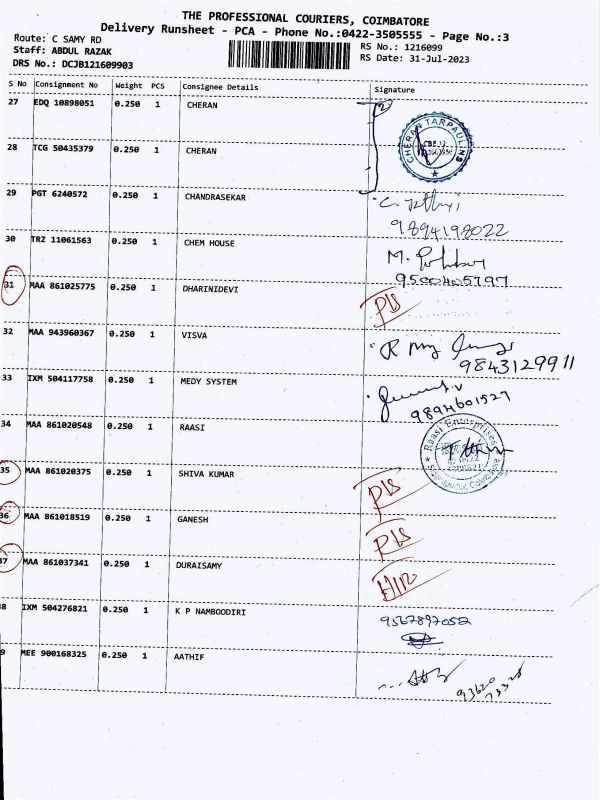 THE PROFESSIONAL COURIERS, COIMBATORE
Delivery Runsheet - PCA - Phone No.:0422-3505555 - Page No.:3
Route: C SAMY RD
Staff: ABDUL RAZAK
DRS No.: DCJB121609903
RS No.: 1216099
RS Date: 31-Jul-2023
S No Consignment No Weight PCS Consignee Details Signature
27 EDQ 10898051 0.250 1 CHERAN
CHERAN TARPAULINS
28 TCG 50435379 0.250 1 CHERAN
29 PGT 6240572 0.250 1 CHANDRASEKAR
9894198022
30 TRZ 11061563 0.250 1 CHEM HOUSE
M.
9500405797
31 MAA 861025775 0.250 1 DHARINIDEVI
32 MAA 943960367 0.250 1 VISVA
9843129911
33 IXM 504117758 0.250 1 MEDY SYSTEM
9894601527
34 MAA 861020548 0.250 1 RAASI
Raasi Enterprises
35 MAA 861020375 0.250 1 SHIVA KUMAR
36 MAA 861018519 0.250 1 GANESH
37 MAA 861037341 0.250 1 DURAISAMY
8 IXM 504276821 0.250 1 K P NAMBOODIRI
9567897052
9 MEE 900168325 0.250 1 AATHIF